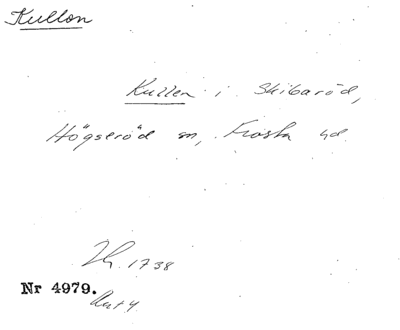 Kullon
Kullen i Skibaröd,
Högseröd sn, Frosta hd.
1738
Nr 4979.